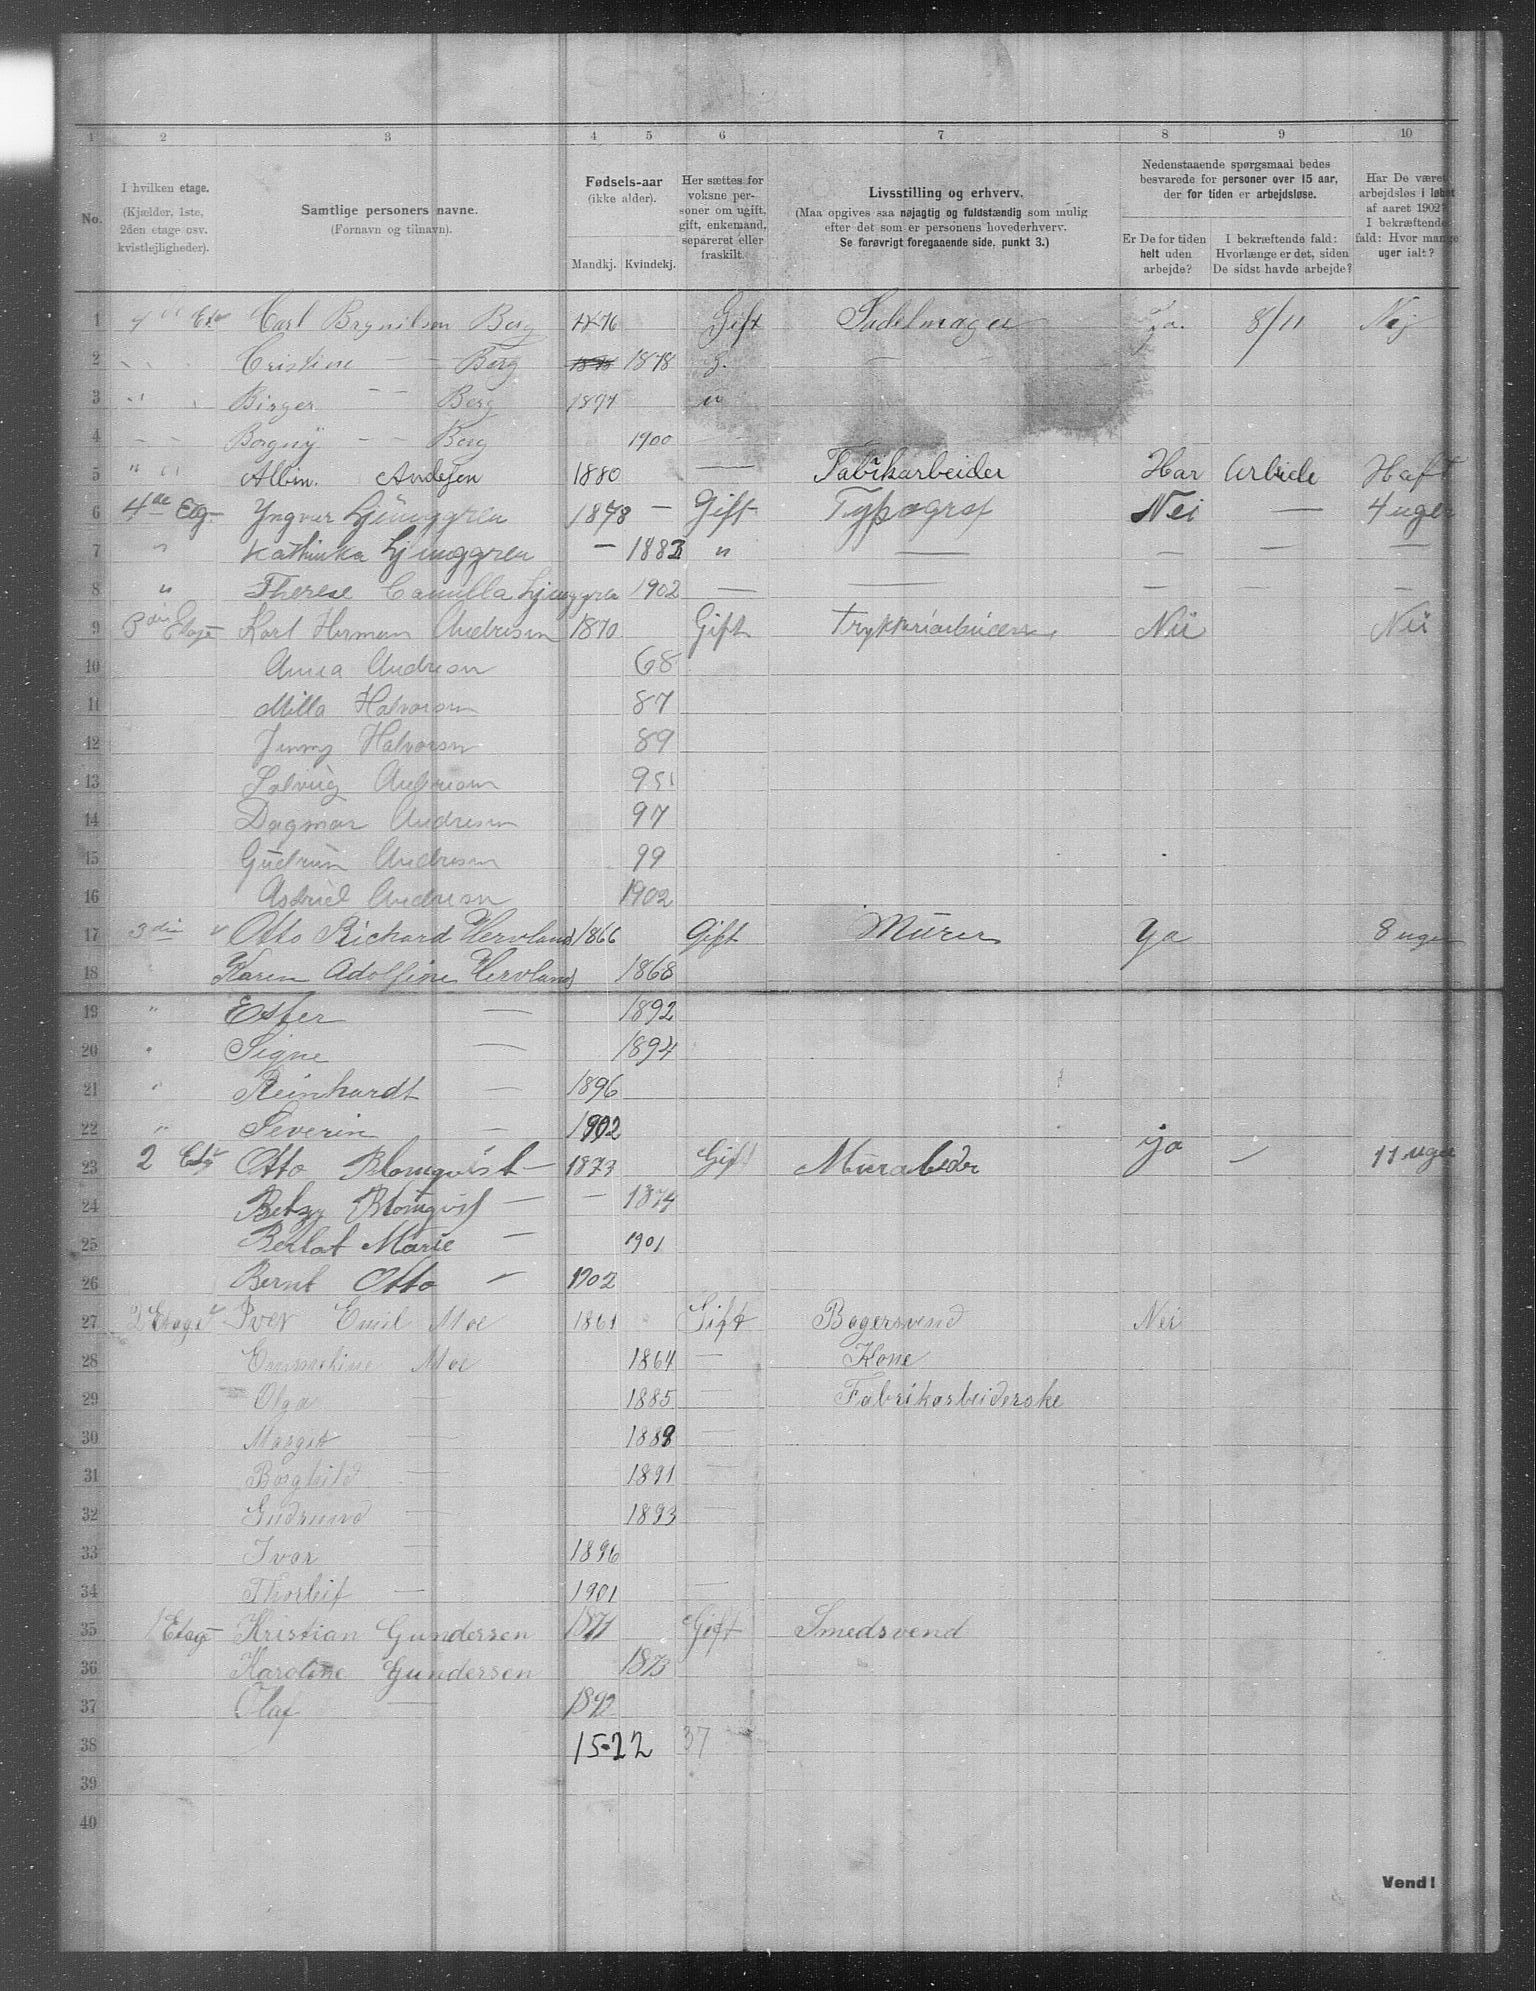 1 2 3 4 5 6 7 8 9 10
No.
I hvilken etage.
(Kjælder, 1ste,
2den etage osv.
kvistlejligheder).
Samtlige personers navne.
(Fornavn og tilnavn).
Fødsels-aar
(ikke alder).
Mandkj. Kvindekj.
Her sættes for
voksne per-
soner om ugift,
gift, enkemand,
separeret eller
fraskilt.
Livsstilling og erhverv.
(Maa opgives saa nøjagtig og fuldstændig som mulig
efter det som er personens hovederhverv.
Se forøvrigt foregaaende side, punkt 3.)
Nedenstaaende spørgsmaal bedes
besvarede for personer over 15 aar,
der for tiden er arbejdsløse.
Er De for tiden
helt uden
arbejde?
I bekræftende fald:
Hvorlænge er det, siden
De sidst havde arbejde?
Har De været
arbejdsløs i løbet
af aaret 1902?
I bekræftende
fald: Hvor mange
uger ialt?
1 4 Et Carl Brynilsen Berg 1876 Gift Sadelmager Ja. 8/11 Nej
2 " " Cristine — Berg 1878 g. —
3 " " Birger — — Berg 1897 u
4 — — Borgny — — Berg 1900 —
5 " " Albin. Andesen 1880 — Fabrikarbeider Har Arbeide Haft
6 4de Etg. Yngvar Ljunggren 1878 — Gift Typograf Nei — 4 uger
7 " Kathinka Ljunggren — 1882 " — — — —
8 " Therese Camilla Ljunggren 1902 — — — —
9 3die Etage Karl Herman Andresen 1870 Gift Trykkeriarbeider Nei Nei
10 Anna Andresen 68
11 Milla Halvorsen 87
12 Jenny Halvorsen 89
13 Solveig Andresen 95
14 Dagmar Andresen 97
15 Gudrun Andresen 99
16 Astrid Andresen 1902
17 3die Otto Richard Hervland 1866 Gift Murer Ja 8 uger
18 Karen Adolfine Hervland 1868
19 " Ester — 1892
20 " Signe — 1894
21 " Reinhardt — 1896
22 " Severin — 1902
23 2 Etg Otto Blomqvist — 1873 Gift Murarbeder ja — 11 uger
24 Betzy Blomqvist — — 1874
25 Berlot Marie — 1901
26 Bernt Otto — 1902
27 2 Etage Iver Emil Moe 1861 Gift Bagersvend Nei
28 Emmeline Moe 1864 — Kone
29 Olga — 1885 — Fabrikarbeiderske
30 Margit — 1888 —
31 Borghild — 1891 —
32 Gudrund — 1893 —
33 Ivar — 1896
34 Thorleif — 1901 —
35 1 Etage Kristian Gundersen 1871 Gift Smedsvend
36 Karoline Gundersen 1873
37 Olaf — 1892
38 15-22 37
39
40
Vend!